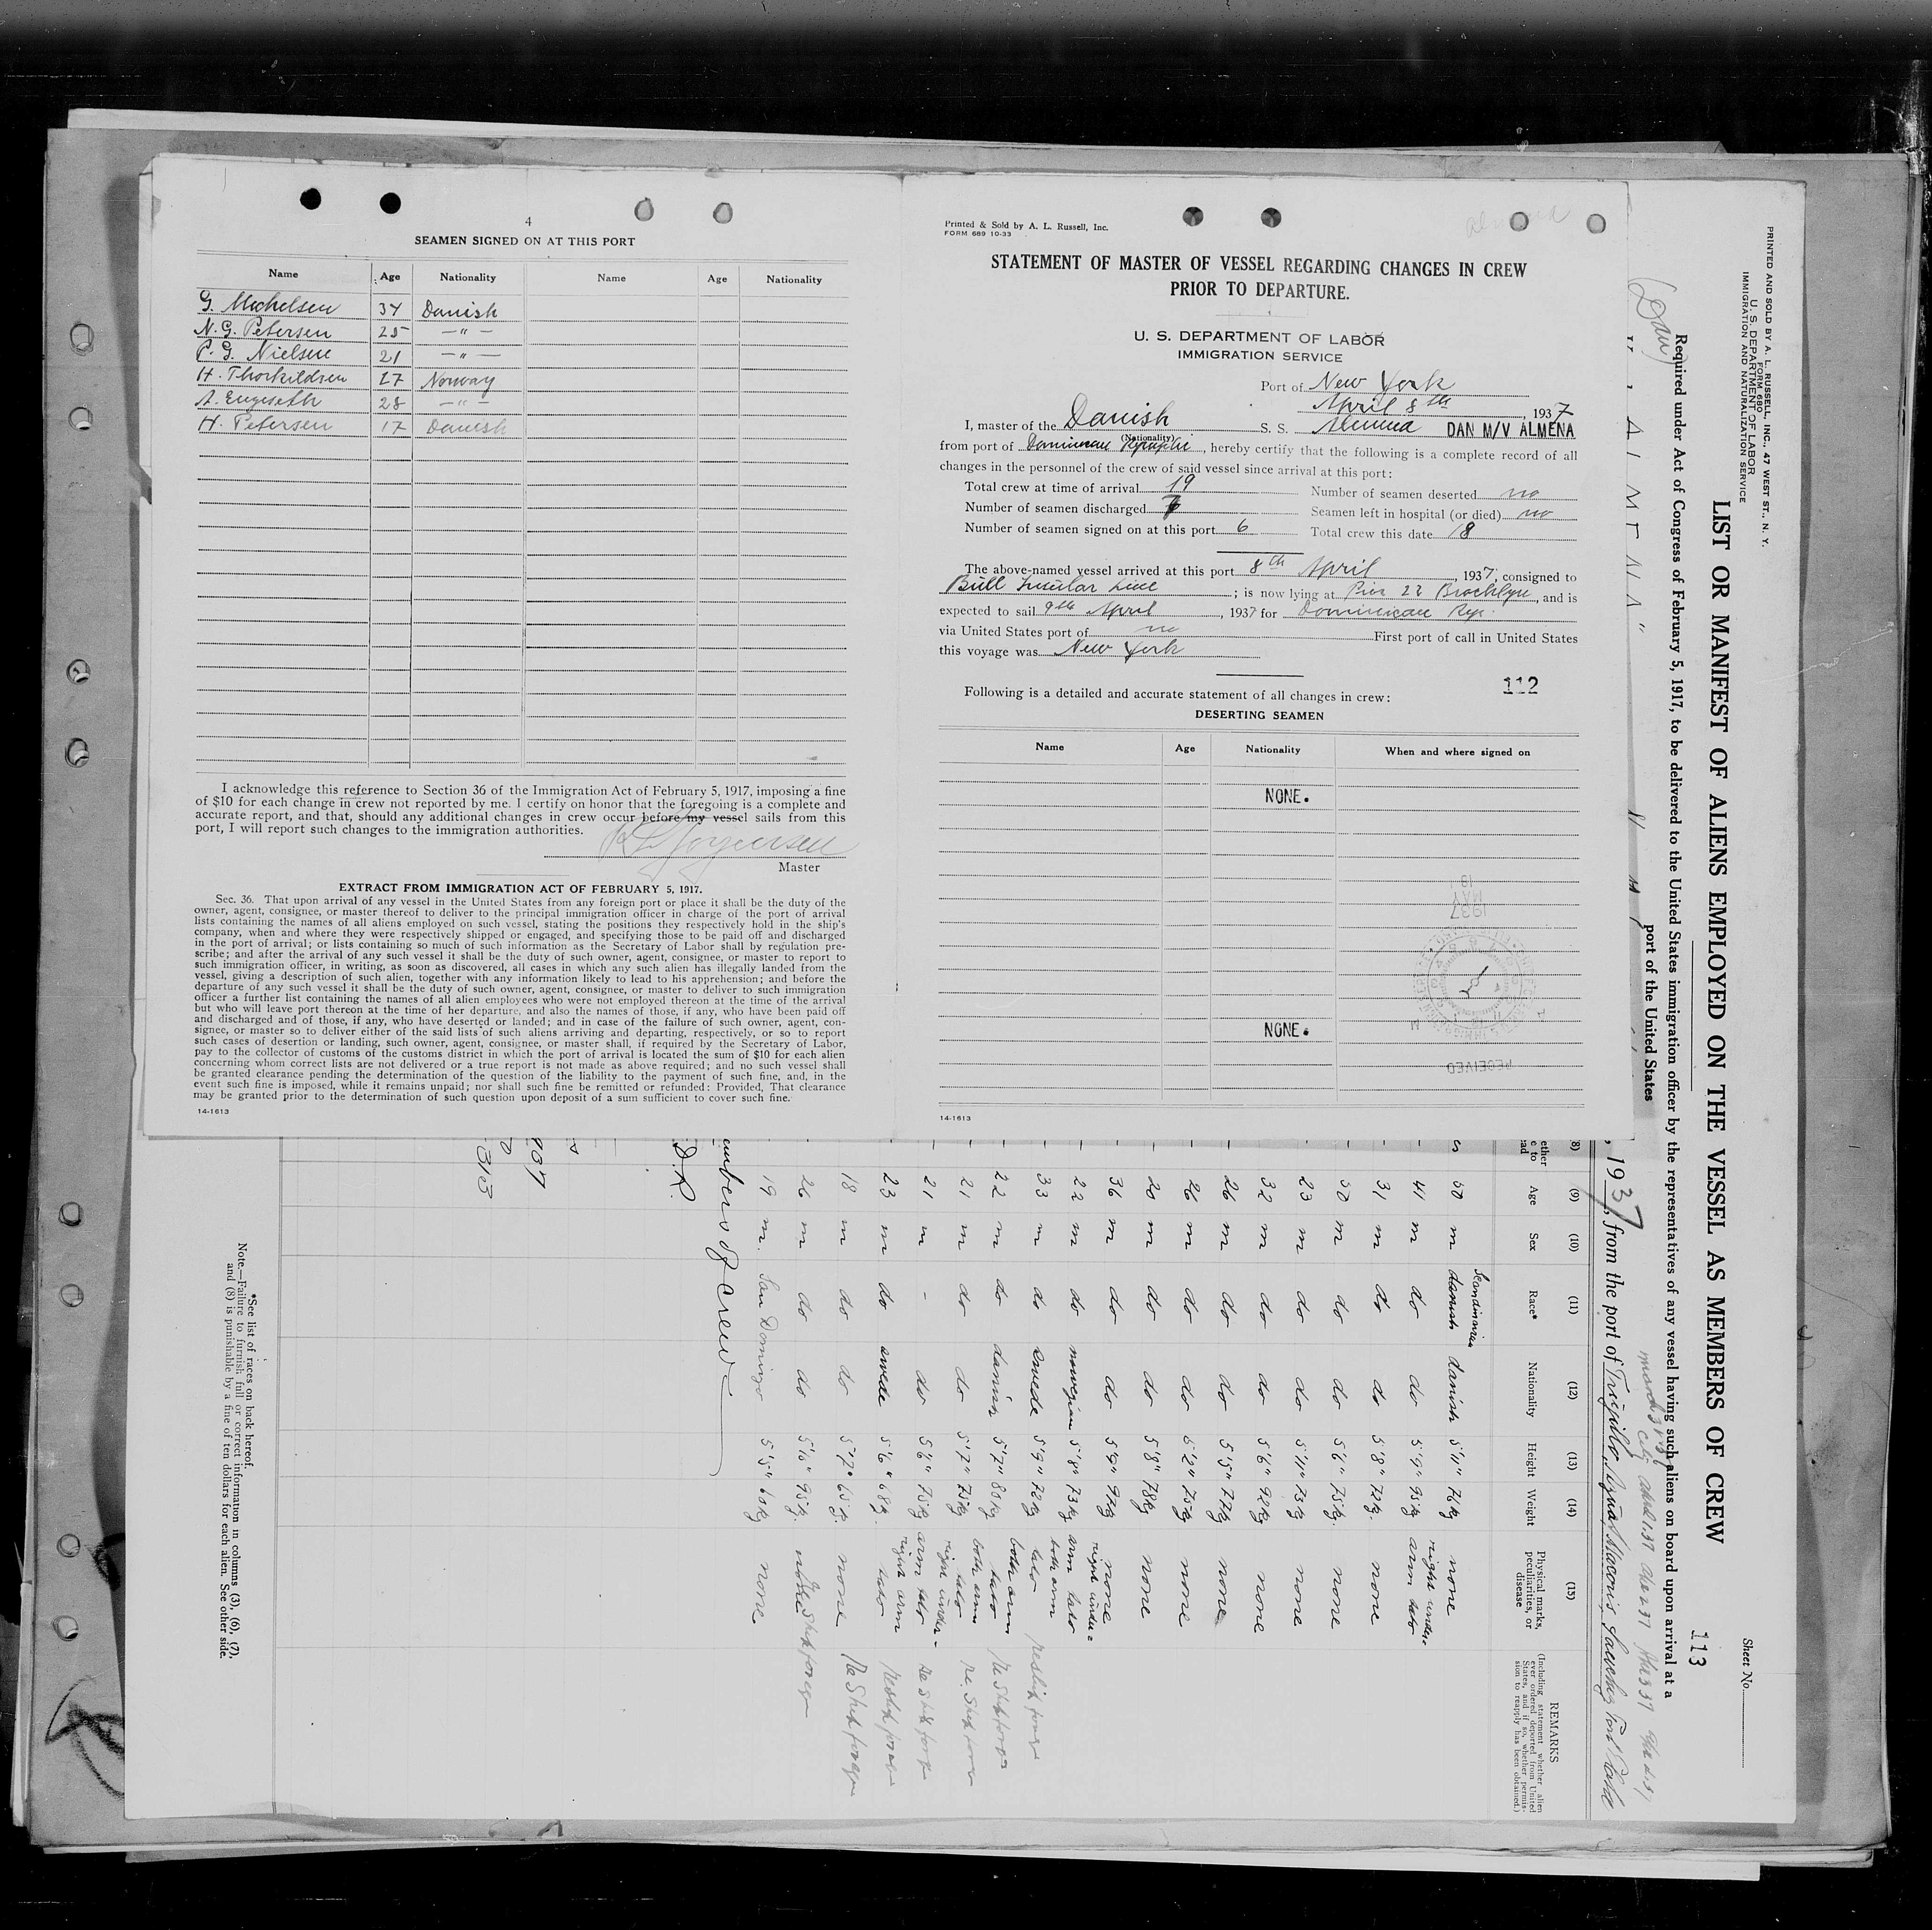 4
SEAMEN SIGNED ON AT THIS PORT
Name Age Nationality Name Age Nationality
G. Michelsen 34 Danish
N. G. Petersen 25 —"—
P. G. Nielsen 21 —"—
H. Thorkildsen 27 Norway
A. Engeseth 28 —"—
H. Petersen 17 Danish
I acknowledge this reference to Section 36 of the Immigration Act of February 5, 1917, imposing a fine
of $10 for each change in crew not reported by me. I certify on honor that the foregoing is a complete and
accurate report, and that, should any additional changes in crew occur before my vessel sails from this
port, I will report such changes to the immigration authorities.
Jorgensen
Master
EXTRACT FROM IMMIGRATION ACT OF FEBRUARY 5, 1917.
Sec. 36. That upon arrival of any vessel in the United States from any foreign port or place it shall be the duty of the
owner, agent, consignee, or master thereof to deliver to the principal immigration officer in charge of the port of arrival
lists containing the names of all aliens employed on such vessel, stating the positions they respectively hold in the ship's
company, when and where they were respectively shipped or engaged, and specifying those to be paid off and discharged
in the port of arrival; or lists containing so much of such information as the Secretary of Labor shall by regulation pre-
scribe; and after the arrival of any such vessel it shall be the duty of such owner, agent, consignee, or master to report to
such immigration officer, in writing, as soon as discovered, all cases in which any such alien has illegally landed from the
vessel, giving a description of such alien, together with any information likely to lead to his apprehension; and before the
departure of any such vessel it shall be the duty of such owner, agent, consignee, or master to deliver to such immigration
officer a further list containing the names of all alien employees who were not employed thereon at the time of the arrival
but who will leave port thereon at the time of her departure, and also the names of those, if any, who have been paid off
and discharged and of those, if any, who have deserted or landed; and in case of the failure of such owner, agent, con-
signee, or master so to deliver either of the said lists of such aliens arriving and departing, respectively, or so to report
such cases of desertion or landing, such owner, agent, consignee, or master shall, if required by the Secretary of Labor,
pay to the collector of customs of the customs district in which the port of arrival is located the sum of $10 for each alien
concerning whom correct lists are not delivered or a true report is not made as above required; and no such vessel shall
be granted clearance pending the determination of the question of the liability to the payment of such fine, and, in the
event such fine is imposed, while it remains unpaid; nor shall such fine be remitted or refunded: Provided, That clearance
may be granted prior to the determination of such question upon deposit of a sum sufficient to cover such fine.
14-1613
Printed & Sold by A. L. Russell, Inc.
FORM 689 10-33
STATEMENT OF MASTER OF VESSEL REGARDING CHANGES IN CREW
PRIOR TO DEPARTURE.
U. S. DEPARTMENT OF LABOR
IMMIGRATION SERVICE
Port of New York
April 8th, 1937
I, master of the Danish S. S. Almena DAN M/V ALMENA
(Nationality)
from port of Dominican Republic, hereby certify that the following is a complete record of all
changes in the personnel of the crew of said vessel since arrival at this port:
Total crew at time of arrival 19 Number of seamen deserted no
Number of seamen discharged 7 Seamen left in hospital (or died) no
Number of seamen signed on at this port 6 Total crew this date 18
The above-named vessel arrived at this port 8th April, 1937, consigned to
Bull Insular Line; is now lying at Pier 22 Brooklyn, and is
expected to sail 9th April, 1937 for Dominican Rep.
via United States port of no First port of call in United States
this voyage was New York
112
Following is a detailed and accurate statement of all changes in crew:
DESERTING SEAMEN
Name Age Nationality When and where signed on
NONE.
NONE.
RECEIVED
14-1613
PRINTED AND SOLD BY A. L. RUSSELL, INC., 47 WEST ST., N. Y.
FORM 680
U. S. DEPARTMENT OF LABOR
IMMIGRATION AND NATURALIZATION SERVICE
Sheet No.
LIST OR MANIFEST OF ALIENS EMPLOYED ON THE VESSEL AS MEMBERS OF CREW
113
Required under Act of Congress of February 5, 1917, to be delivered to the United States immigration officer by the representatives of any vessel having such aliens on board upon arrival at a
port of the United States
(Dan)
ALMENA"
, 1937, from the port of Trujillo, Macoris, Sanchez,
(8) (9) (10) (11) (12) (13) (14) (15)
Age Sex Race* Nationality Height Weight Physical marks, peculiarities, or disease
REMARKS
(Including statement whether alien ever ordered deported from United States, and if so, whether permission to reapply has been obtained.)
Scandinavian
50 m danish danish 5'11" 76kg none
41 m do do 5'9" 95kg right under arm tato
31 m do do 5'8" 72kg. none
50 m do do 5'6" 75kg. none
23 m do do 5'11" 73kg none
32 m do do 5'6" 92kg none
26 m do do 5'5" 77kg none
26 m do do 6'2" 75kg none
20 m do do 5'8" 78kg none
36 m do do 5'9" 97kg none
22 m do norwegian 5'8" 73kg right under arm tato
33 m do swede 5'9" 72kg both arm tato
22 m do danish 5'7" 80kg both arm tato
21 m do do 5'7" 75kg both arm tato
21 m - do 5'6" 75kg right under-arm tato
23 m do swede 5'6" 68kg. right arm tato
18 m do do 5'7" 65kg. none
26 m do do 5'10" 95kg.
19 m. San Domingo 5'5" 60kg none
umbers of crew
D.R.
*See list of races on back hereof.
Note.—Failure to furnish full or correct information in columns (3), (6), (7),
and (8) is punishable by a fine of ten dollars for each alien. See other side.